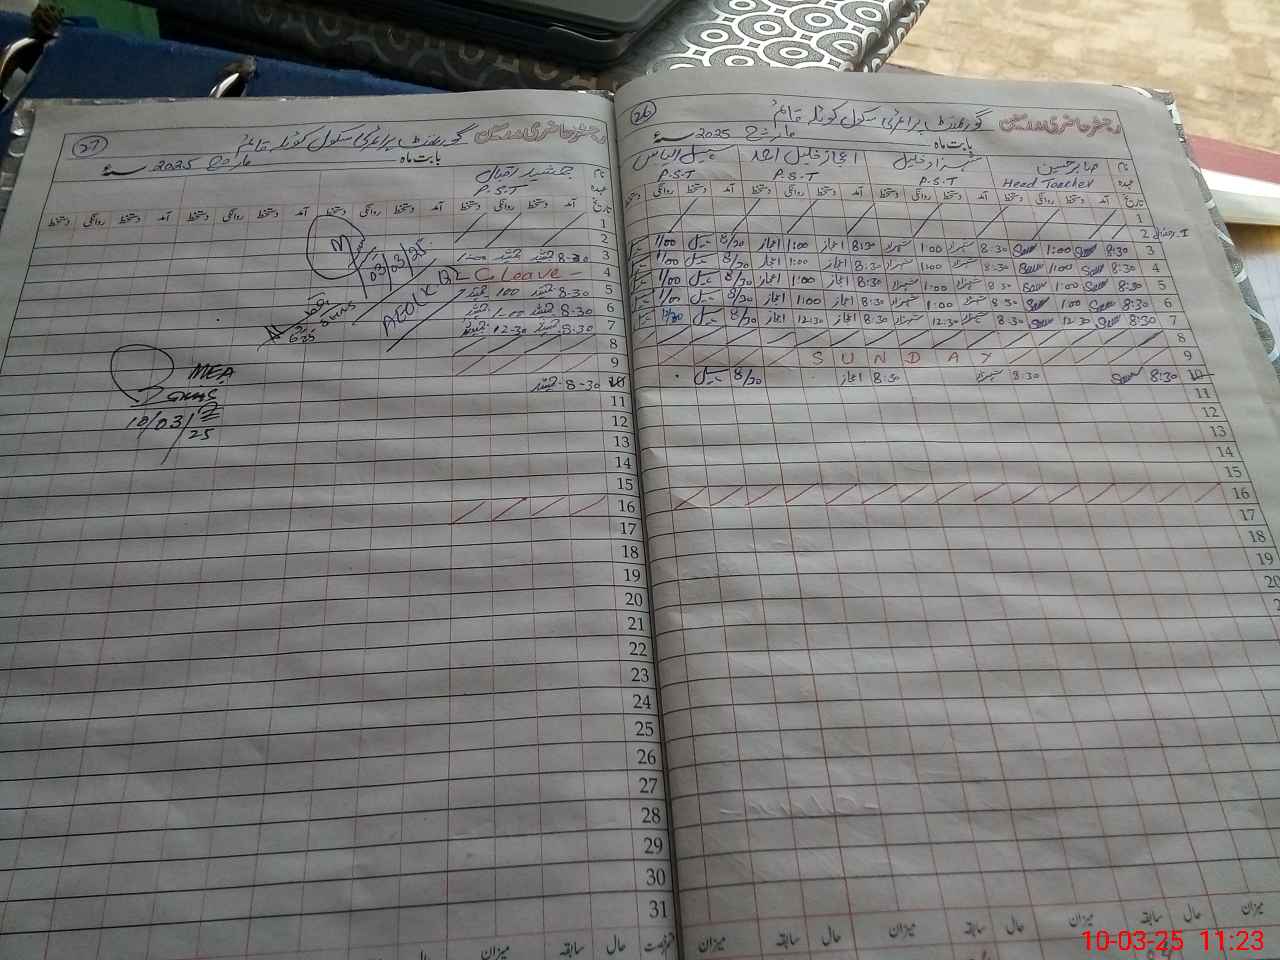 26
رجسٹر حاضری مدرسین گورنمنٹ پرائمری سکول کوٹلہ قائم
بابت ماہ مارچ 2025 سنہ
نام صابر حسین شہزاد خلیل اعجاز خلیل احمد سہیل الیاس
عہدہ Head Teacher P.S.T P.S.T P.S.T
تاریخ آمد دستخط روانگی دستخط آمد دستخط روانگی دستخط آمد دستخط روانگی دستخط آمد دستخط روانگی دستخط
1
2
3 8:30 1:00 8:30 1:00 8:30 اعجاز 1:00 اعجاز 8/30 سہیل 1/00
4 8:30 1:00 8:30 1:00 8:30 اعجاز 1:00 اعجاز 8/30 سہیل 1/00
5 8:30 1:00 8:30 1:00 8:30 اعجاز 1:00 اعجاز 8/30 سہیل 1/00
6 8:30 1:00 8:30 1:00 8:30 اعجاز 1:00 اعجاز 8/30 سہیل 1/00
7 8:30 12:30 8:30 12:30 8:30 اعجاز 12:30 اعجاز 8/30 سہیل 12/30
8
9 SUNDAY
10 8:30 8:30 8:30 اعجاز 8/30 سہیل
11
12
13
14
15
16
17
18
19
20
2
میزان حال سابقہ میزان حال سابقہ میزان حال سابقہ میزان
27
رجسٹر حاضری مدرسین گورنمنٹ پرائمری سکول کوٹلہ قائم
بابت ماہ مارچ 2025 سنہ
نام جمشید اقبال
عہدہ P.S.T
تاریخ آمد دستخط روانگی دستخط آمد دستخط روانگی دستخط آمد دستخط روانگی دستخط آمد دستخط روانگی دستخط
1
2
3 8:30 جمشید 1:00 جمشید
4 C Leave
5 8:30 جمشید 1:00 جمشید
6 8:30 جمشید 1:00 جمشید
7 8:30 جمشید 12:30 جمشید
8
9
10 8-30 جمشید
11
12
13
14
15
16
17
18
19
20
21
22
23
24
25
26
27
28
29
30
31
میزان سابقہ حال
03/03/25
MEA
10/03/
25
10-03-25 11:23